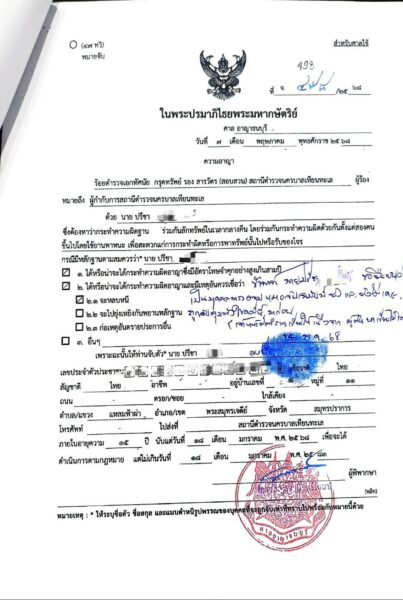 (๔๗ ทวิ)
หมายจับ
สำหรับศาลใช้
ที่ จ. ๔๙๘ /๒๕ ๖๘
ในพระปรมาภิไธยพระมหากษัตริย์
ศาล อาญาธนบุรี
วันที่ ๗ เดือน พฤษภาคม พุทธศักราช ๒๕ ๖๘
ความอาญา
ร้อยตำรวจเอกทัศนัย กรุดทรัพย์ รอง สารวัตร (สอบสวน) สถานีตำรวจนครบาลเทียนทะเล ผู้ร้อง
หมายถึง ผู้กำกับการสถานีตำรวจนครบาลเทียนทะเล
ด้วย นาย ปรีชา
ซึ่งต้องหาว่ากระทำความผิดฐาน ร่วมกันลักทรัพย์ในเวลากลางคืน โดยร่วมกันกระทำความผิดด้วยกันตั้งแต่สองคน
ขึ้นไปโดยใช้ยานพาหนะ เพื่อสะดวกแก่การกระทำผิดหรือการพาทรัพย์นั้นไปหรือรับของโจร
กรณีมีหลักฐานตามสมควรว่า* นาย ปรีชา
๑. ได้หรือน่าจะได้กระทำความผิดอาญาซึ่งมีอัตราโทษจำคุกอย่างสูงเกินสามปี
๒. ได้หรือน่าจะได้กระทำความผิดอาญาและมีเหตุอันควรเชื่อว่า
๒.๑ จะหลบหนี
๒.๒ จะไปยุ่งเหยิงกับพยานหลักฐาน
๒.๓ ก่อเหตุอันตรายประการอื่น
๓. อื่นๆ
เพราะฉะนั้นให้ท่านจับตัว* นาย ปรีชา
เลขประจำตัวประชา เชื้อชาติ ไทย
สัญชาติ ไทย อาชีพ อยู่บ้านเลขที่ หมู่ที่ ๑๑
ถนน - ตรอก/ซอย - ใกล้เคียง -
ตำบล/แขวง แหลมฟ้าผ่า อำเภอ/เขต พระสมุทรเจดีย์ จังหวัด สมุทรปราการ
โทรศัพท์ - ไปส่งที่ สถานีตำรวจนครบาลเทียนทะเล
ภายในอายุความ ๑๕ ปี นับแต่วันที่ ๑๘ เดือน มกราคม พ.ศ. ๒๕ ๖๘ เพื่อจะได้
ดำเนินการตามกฎหมาย แต่ไม่เกินวันที่ ๑๘ เดือน มกราคม พ.ศ. ๒๕ ๘๓
ผู้พิพากษา
(พลิก)
ศาลอาญาธนบุรี
หมายเหตุ : * ให้ระบุชื่อตัว ชื่อสกุล และแนบตำหนิรูปพรรณของบุคคลที่จะถูกจับเท่าที่ทราบไปพร้อมกับหมายนี้ด้วย